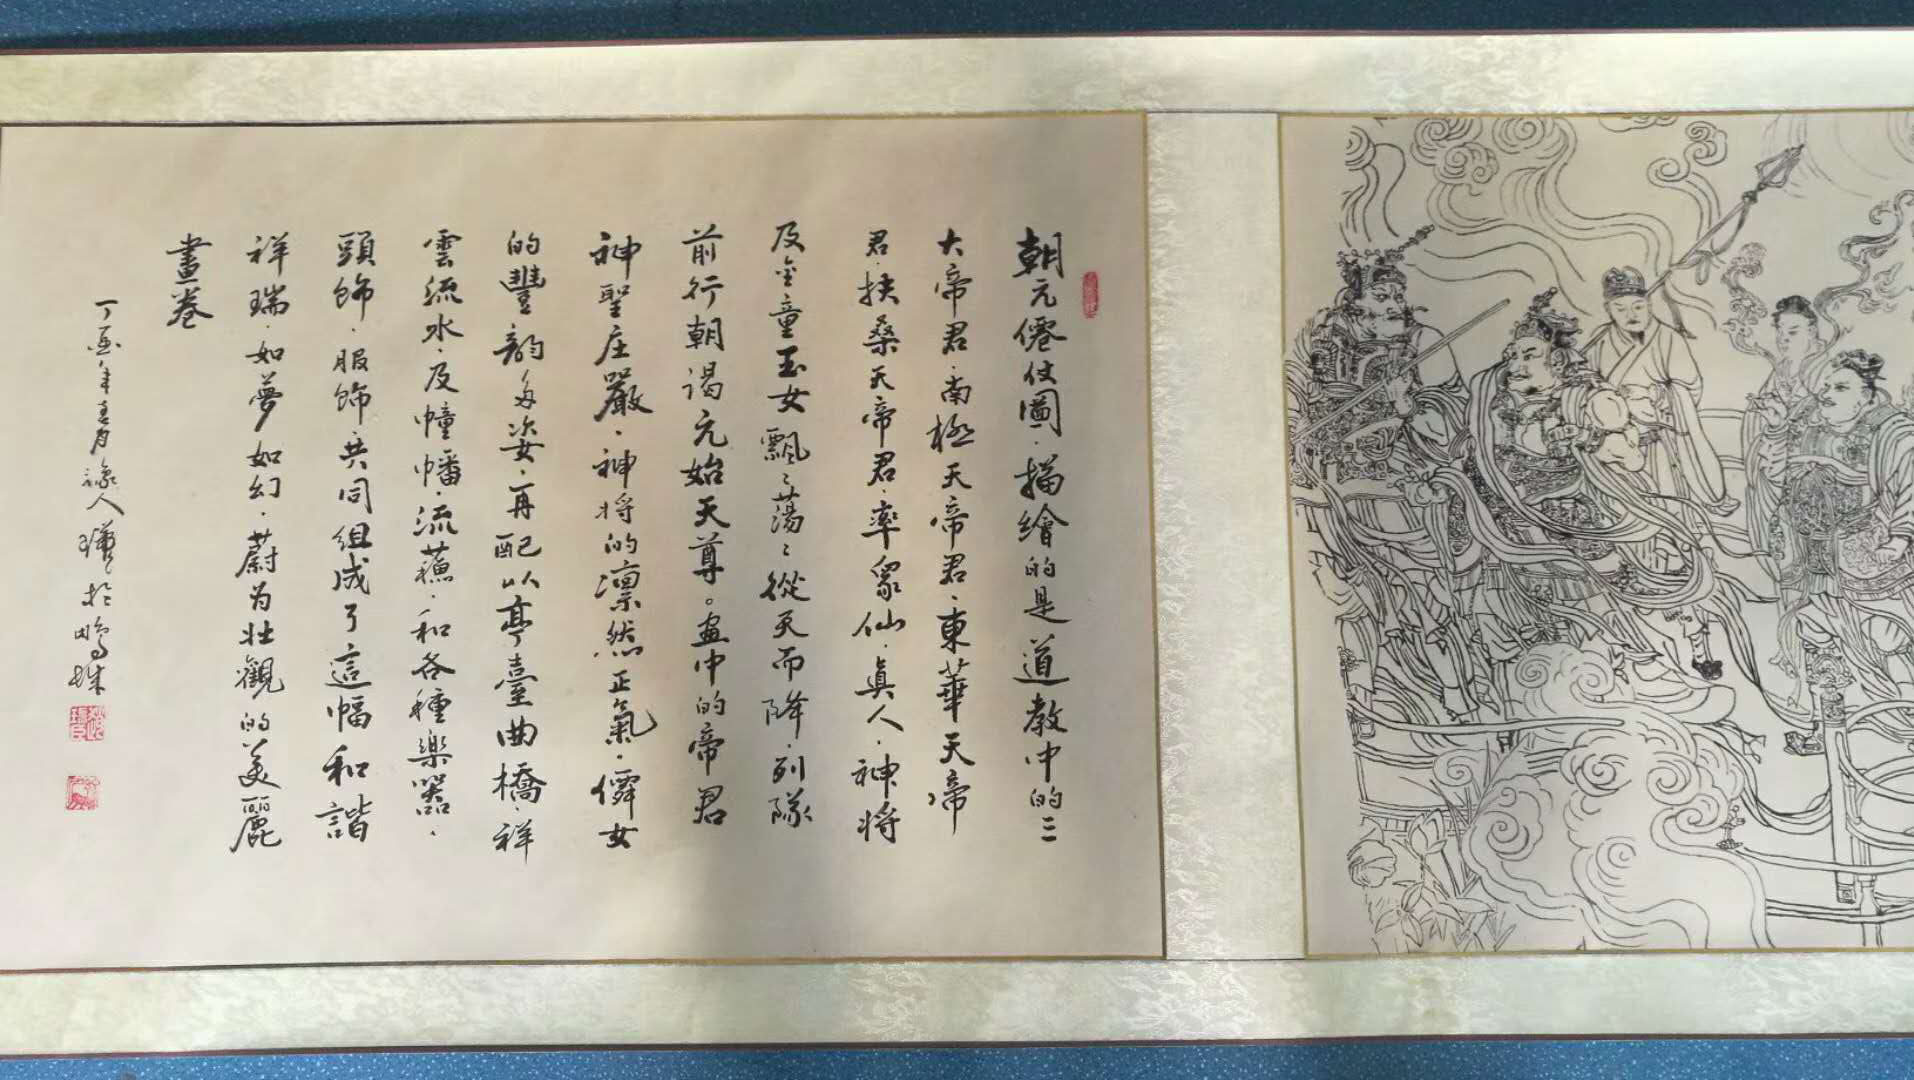 朝元僊仗圖.描繪的是道教中的三
大帝君.南極天帝君.東華天帝
君.扶桑天帝君.率衆仙.真人.神将
及金童玉女飄飄蕩蕩從天而降.列隊
前行朝謁元始天尊。畫中的帝君
神聖庄嚴.神将的凛然正氣.僊女
的豐韵多姿.再配以亭臺曲橋.祥
雲流水.及幢幡.流蘇.和各種樂器.
頭飾.服飾共同組成了這幅和諧
祥瑞.如夢如幻.蔚为壮觀的美麗
畫卷
丁酉年 人 於